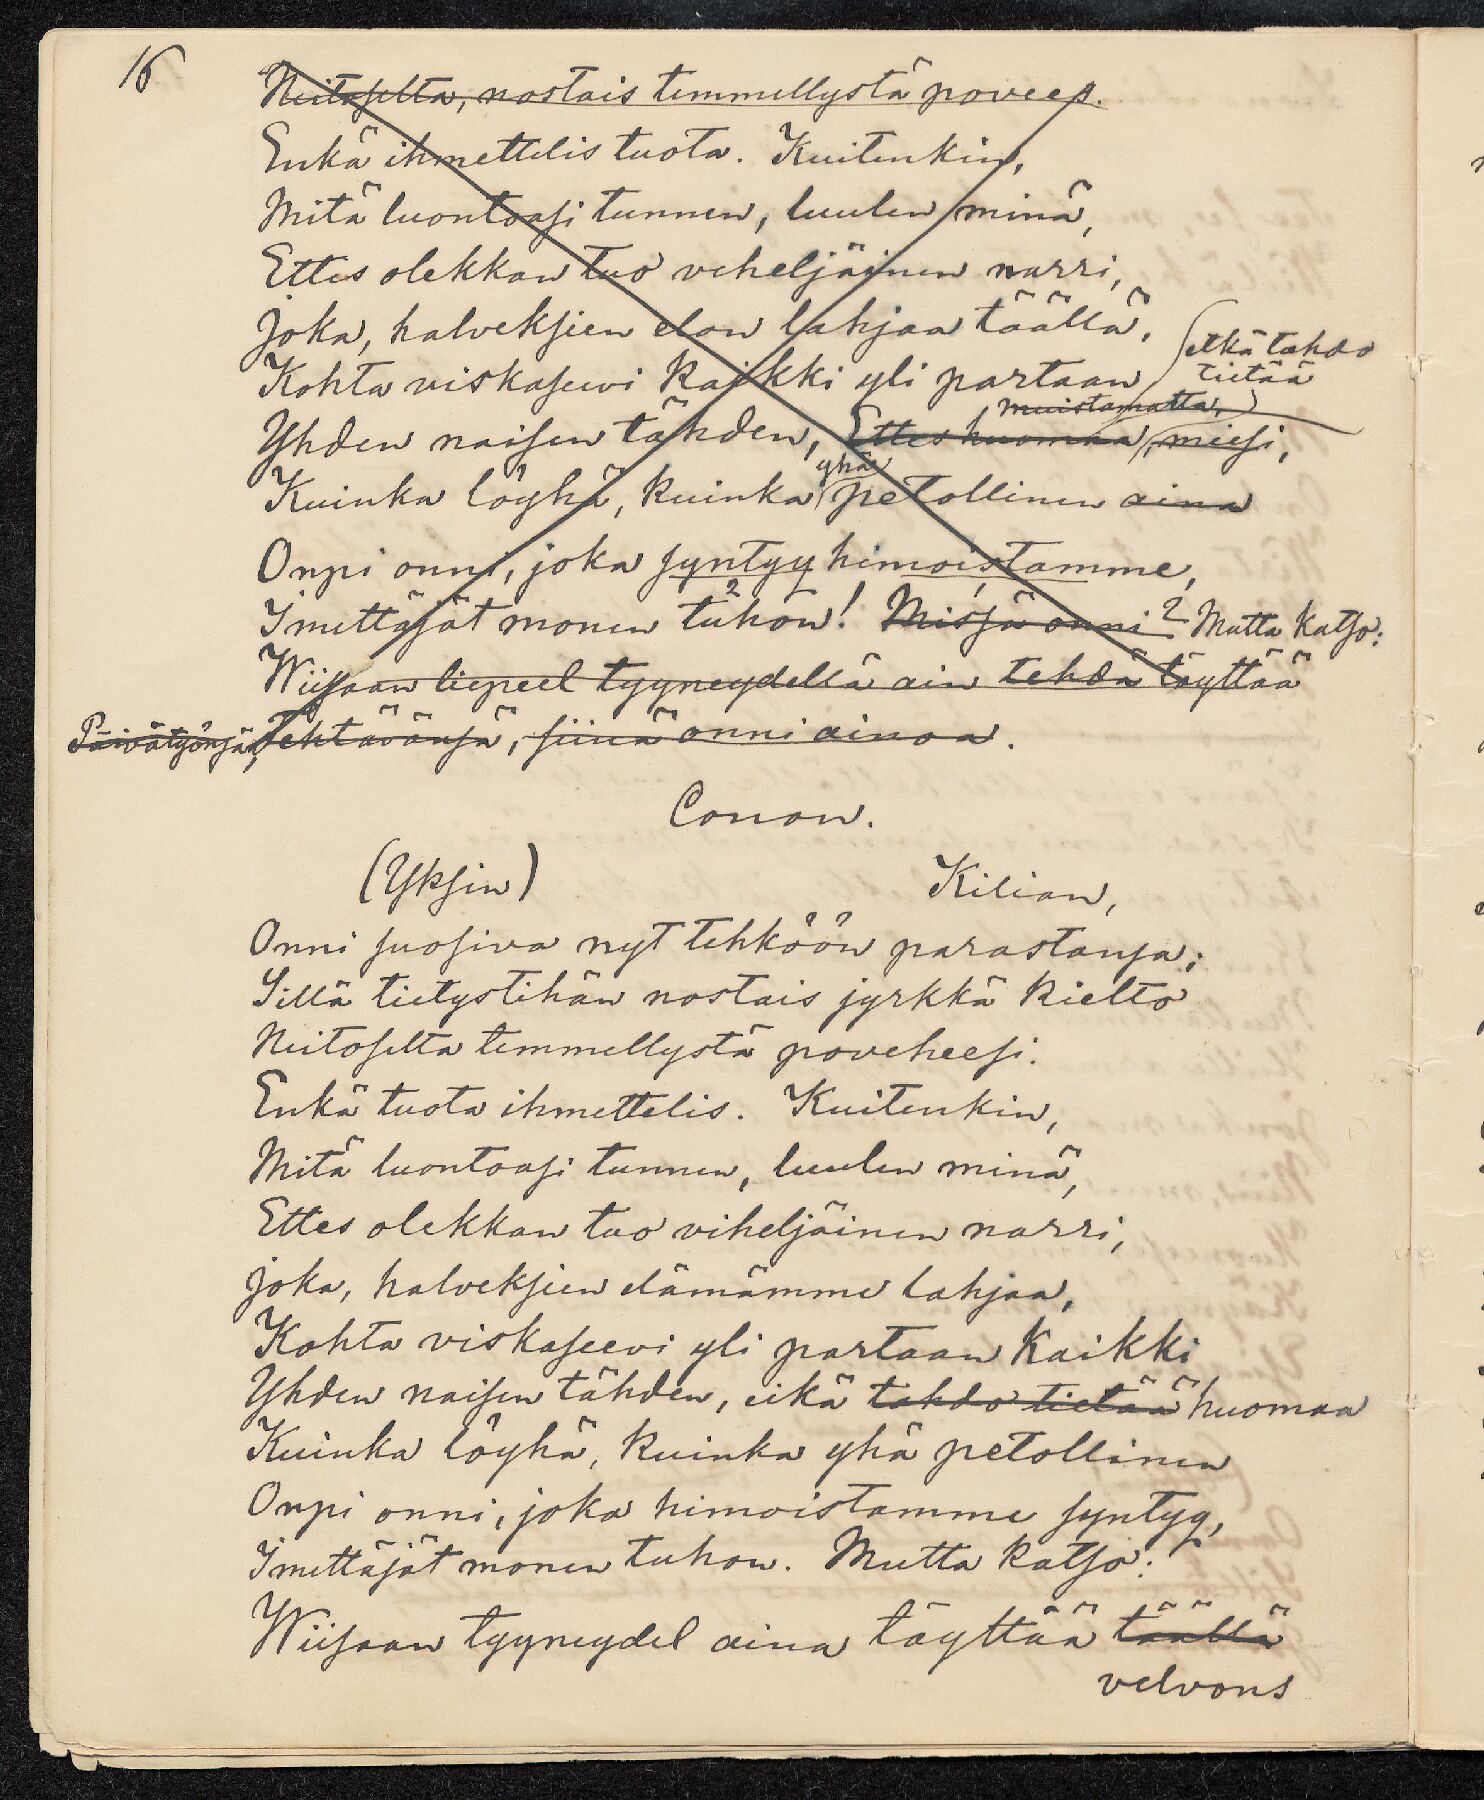 16
Neitoselta, nostais temmellystä povees.
Enkä ihmettelis tuota. Kuitenkin,
Mitä luontoasi tunnen, luulen minä,
Ettes olekkan tuo viheljäinen narri,
Joka, halveksien elon lahjaa täällä,
etkä tahdo
Kohta viskaseevi kaikki yli partaan
tietää
muistamatta,
Yhden naisen tähden, Ettes huomaa, miesi,
yhä
Kuinka löyhä, kuinka petollinen aina
Onpi onni, joka syntyy himoistamme,
Imettäjät monen tuhon! Missä onni? Mutta katso:
Wiisaan liepeel tyyneydellä ain tehdä täyttää
Päivätyönsä, Tehtävänsä, siinä onni ainoa.
Conon.
(Yksin) Kilian,
Onni suosiva nyt tehköön parastansa;
Sillä tietystihän nostais jyrkkä kielto
Neitoselta temmellystä poveheesi.
Enkä tuota ihmettelis. Kuitenkin,
Mitä luontoasi tunnen, luulen minä,
Ettes olekkan tuo viheljäinen narri,
Joka, halveksien elämämme lahjaa,
Kohta viskaseevi yli partaan kaikki
Yhden naisen tähden, eikä tahdo tietää huomaa
Kuinka löyhä, kuinka yhä petollinen
Onpi onni, joka himoistamme syntyy,
Imettäjät monen tuhon. Mutta katso:
Wiisaan tyyneydel aina täyttää täällä
velvons